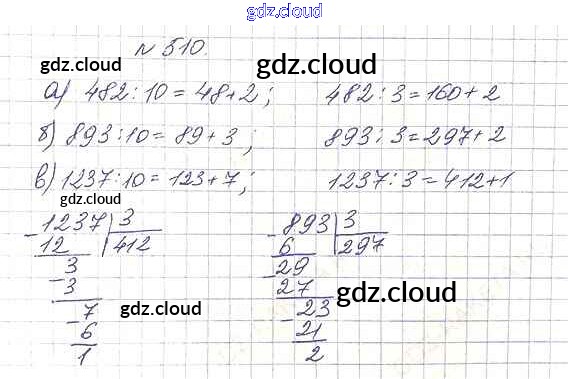 gdz.cloud
N 510.
gdz.cloud gdz.cloud
а) 482:10=48+2; 482:3=160+2
б) 893:10=89+3; 893:3=297+2
gdz.cloud gdz.cloud
в) 1237:10=123+7; 1237:3=412+1
gdz.cloud
1237 3
12 412
3
3
7
6
1
893 3
6 297
29
27
23
21
2
gdz.cloud gdz.cloud